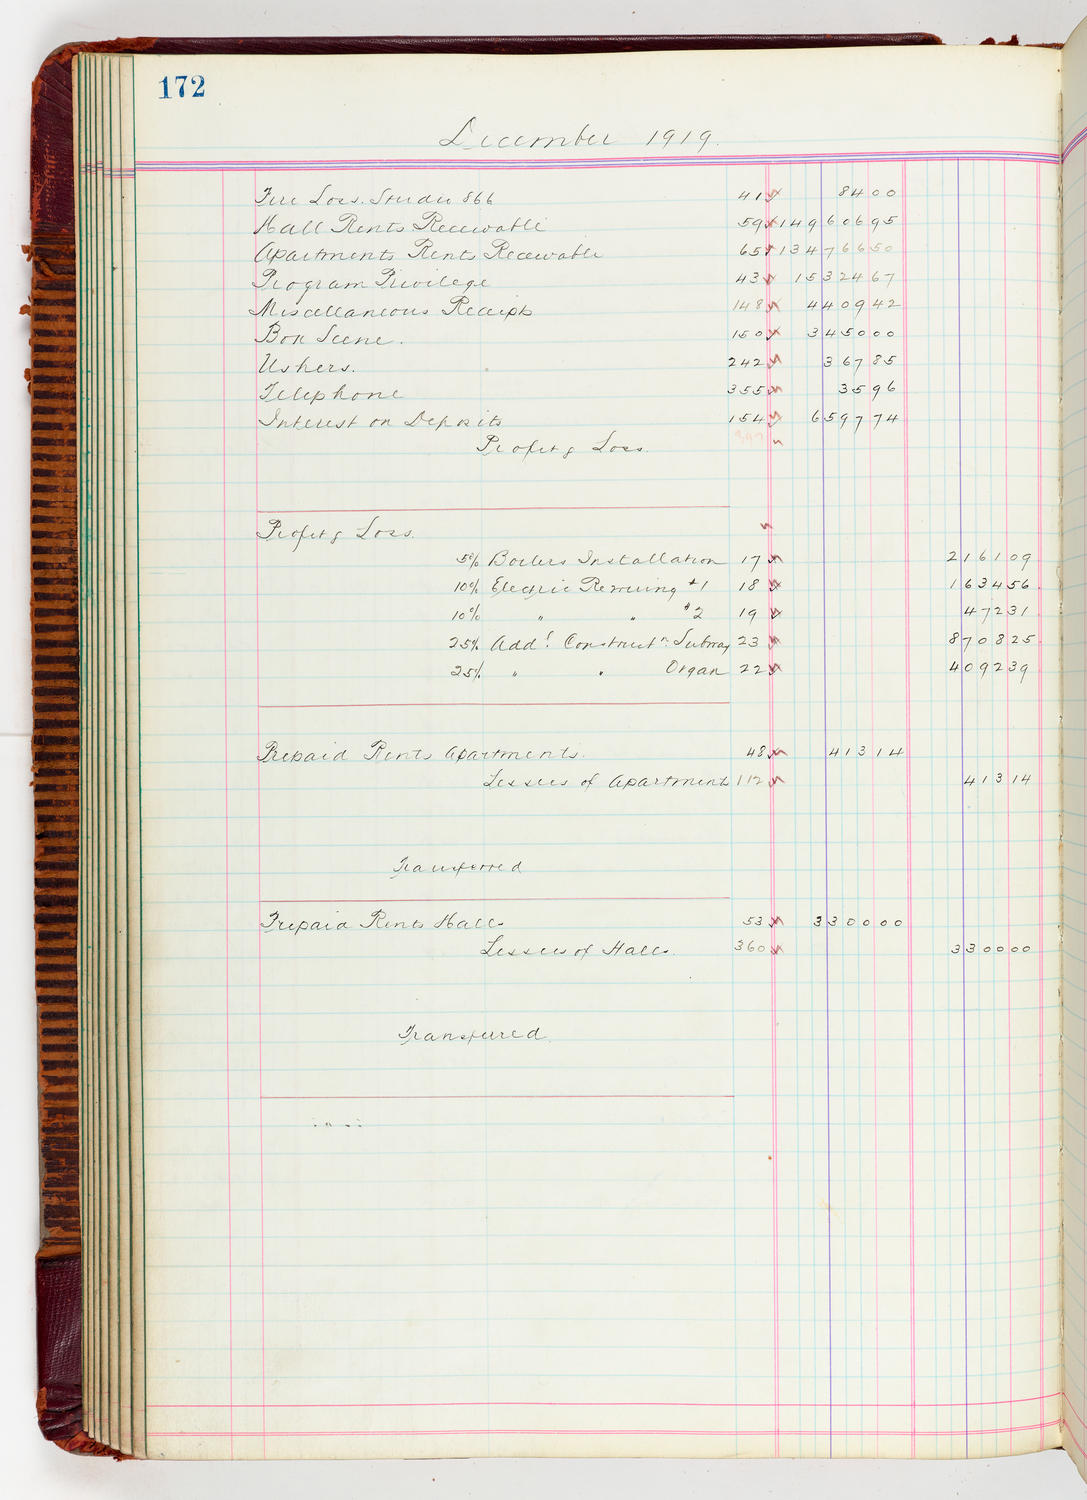 172
December 1919.
Fire Loss. Studio 866 41 8400
Hall Rents Receivable 59 14960695
Apartments Rents Receivable 65 13476650
Program Privilege 43 1532467
Miscellaneous Receipts 148 440942
Box Scene. 150 345000
Ushers. 242 36785
Telephone 355 3596
Interest on Deposits 154 659774
Profit & Loss.
Profit & Loss.
5% Boilers Installation 17 216109
10% Electric Rewiring #1 18 163456
10% " " #2 19 47231
25% Addl. Constructn. Subway 23 870825
25% " " Organ 22 409239
Prepaid Rents Apartments. 48 41314
Lessees of Apartments 112 41314
Transferred
Prepaid Rents Halls 53 330000
Lessees of Halls. 360 330000
Transferred.